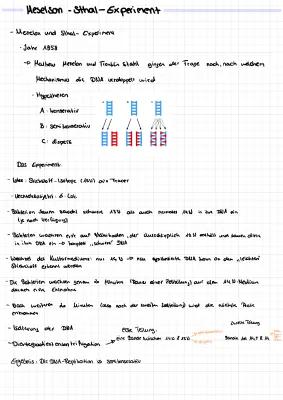 Meselson - Sthal - Experiment
- Meselon und Sthal - Experiment
- Jahr 1958
Mathew Meselon und Franklin Stahl gingen der Frage nach, nach welchem
Mechanismus die DNA verdoppelt wird
- Hypothesen
A: konservativ
B: semikonservativ
C: dispers
Das Experiment:
- Idee: Stickstoff-Isotope (15N) als Tracer
- Bakterien bauen sowohl schweres 15N als auch normales 14N in ihre DNA ein
(je nach Verfügung)
- Bakterien wachsen erst auf Nährboden, der ausschließlich 15N enthält und bauen diesen
in ihre DNA ein → komplett "schwere" DNA
- Wechsel des Kulturmediums: nur 14N → neu synthetisierte DNA kann an dem "leichten"
Stickstoff erkannt werden
- Die Bakterien wachsen genau 20 Minuten (Dauer einer Zellteilung) auf dem 14N Medium
danach erste Entnahme
- Nach weiteren 20 Minuten (also nach der zweiten Zellteilung) wird die nächste Probe
entnommen
- Isolierung der DNA
erste Teilung:
eine Bande zwischen 14N & 15N
zweite Teilung
- Dichtegradientenzentrifugation
Ergebnis: Die DNA-Replikation ist semikonservativ